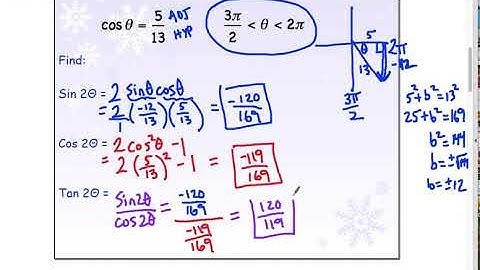 cos θ = 5/13 ADJ HYP
3π/2 < θ < 2π
Find:
Sin 2Θ = 2 sinθ cosθ
= 2/1 (-12/13)(5/13) = -120/169
Cos 2Θ = 2cos²θ - 1
= 2(5/13)² - 1 = -119/169
Tan 2Θ = sin2θ/cos2θ = (-120/169)/(-119/169) = 120/119
5
θ
2π
13
-12
3π/2
5² + b² = 13²
25 + b² = 169
b² = 144
b = ±√144
b = ±12